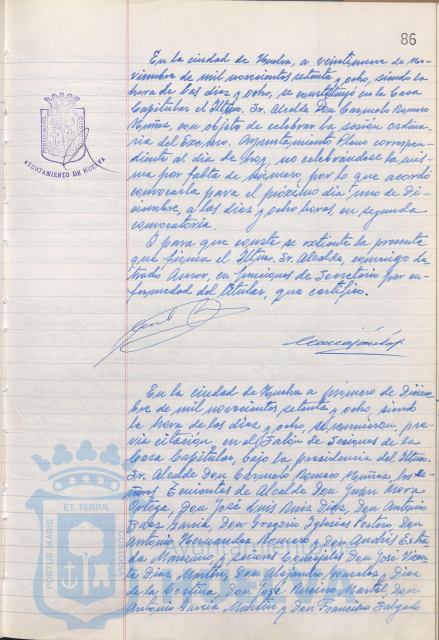 86
En la ciudad de Huelva, a veintinueve de No-
viembre de mil novecientos setenta y ocho, siendo la
hora de las diez y ocho, se constituyó en la Casa
Capitular el Iltmo. Sr. Alcalde Don Carmelo Romero
Núñez, con objeto de celebrar la sesión ordina-
ria del Excmo. Ayuntamiento Pleno correspon-
diente al día de hoy, no celebrándose la mis-
ma por falta de número, por lo que acordó
convocarla para el próximo día uno de Di-
ciembre, a las diez y ocho horas, en segunda
convocatoria.
Y para que conste se extiende la presente
que firma el Iltmo. Sr. Alcalde, conmigo el
Letrado Asesor, en funciones de Secretario por en-
fermedad del titular, que certifico.
AYUNTAMIENTO DE HUELVA
En la ciudad de Huelva a primero de Diciem-
bre de mil novecientos setenta y ocho, siendo
la hora de las diez y ocho, se reunieron, pre-
via citación en el Salón de Sesiones de la
Casa Capitular, bajo la presidencia del Iltmo.
Sr. Alcalde Don Carmelo Romero Núñez, los Se-
ñores Tenientes de Alcalde Don Juan Mora
Ortega, Don José Luis Ruiz Díaz, Don Antonio
Báez García, Don Gregorio Iglesias Portero, Don
Antonio Hernández Romero y Don Andrés Estra-
da Moreno y señores Concejales Don José Vicen-
te Díaz Martín, Don Alejandro González, Díaz
de la Cortina, Don José Martel, Don
Antonio García Martín y Don Francisco Salgado
PORTUS MARIS ET TERRAE CUSTODIA